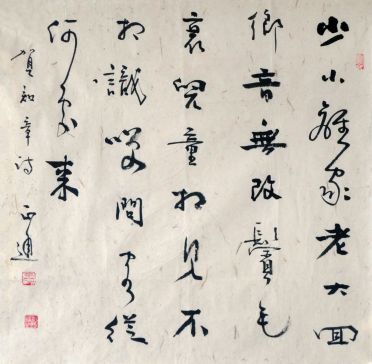 少小離家老大回
鄉音無改鬢毛
衰兒童相見不
相識咲問客從
何處來
賀知章詩 正通